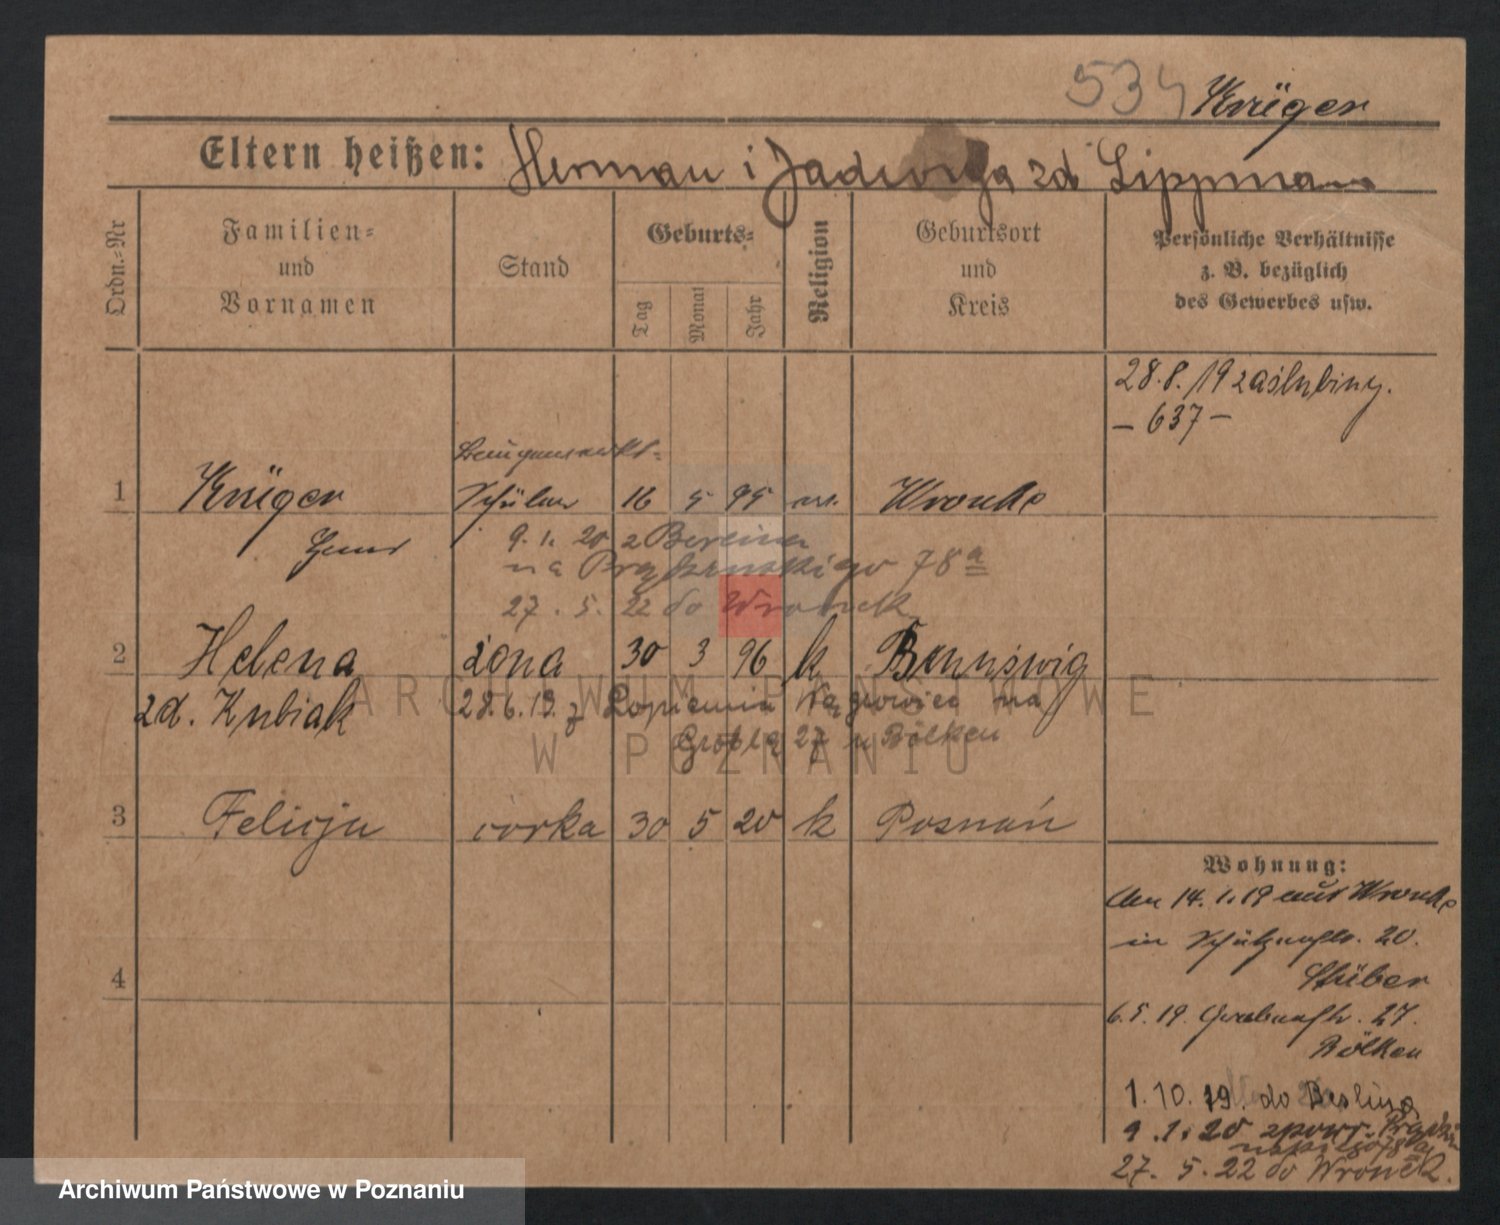 534 Krüger
Eltern heißen: Herman i Jadwiga zd Lippman
Ordn.-Nr
Familien-
und
Vornamen
Stand
Geburts-
Tag
Monat
Jahr
Religion
Geburtsort
und
Kreis
Persönliche Verhältnisse
z. B. bezüglich
des Gewerbes usw.
28.8.19 zaślubiny.
- 637 -
1 Krüger Schüler 16 5 95 Wronke
9. 1. 20 z Berlina
na 78a
27. 5. 22 do Wronek
2 Helena żona 30 3 96 k
zd. Kubiak 28.6.19. z na
Groblą 27 Bölken
3 Felicja corka 30 5 20 k Poznań
4
Wohnung:
Am 14.1.19 aus Wronke
in Schützenstr. 20.
Stüber
6.5.19. Grabenstr. 27.
Bölken
1.10.19. do Berlina
9.1.20
27. 5. 22 do Wronek.
ARCHIWUM PAŃSTWOWE
W POZNANIU
Archiwum Państwowe w Poznaniu